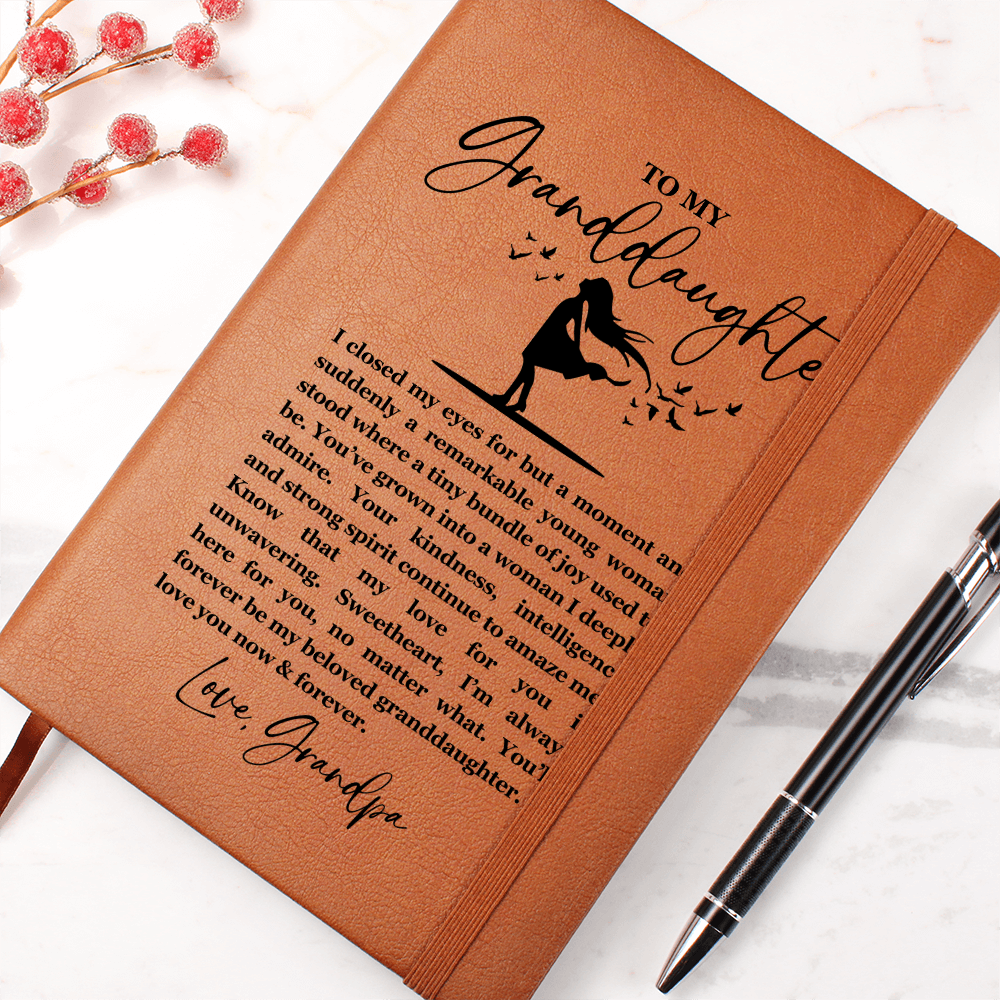 TO MY
Granddaughte
I closed my eyes for but a moment an
suddenly a remarkable young woma
stood where a tiny bundle of joy used t
be. You've grown into a woman I deepl
admire. Your kindness, intelligenc
and strong spirit continue to amaze me
Know that my love for you i
unwavering. Sweetheart, I'm alway
here for you, no matter what. You'l
forever be my beloved granddaughter.
love you now & forever.
Love, Grandpa